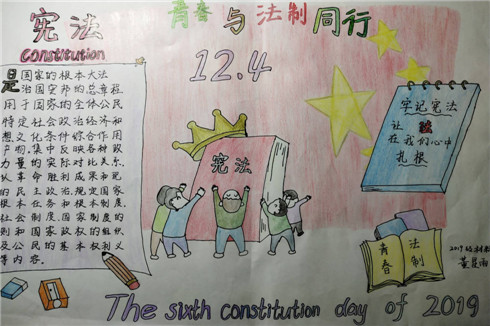 宪法
Constitution
青春与法制同行
12.4
是国家的根本大法
治国安邦的总章程
用于国家的全体公民
特定社会政治经济和
想文化条件综合作用
产物,集中反映各种政
力量的实际对比关系,
认革命胜利成果和现
的民主政治,规定国家
根本任务和根本制度,
社会制度、国家制度的
则和国家政权的组织
及公民的基本权利义
等内容。
宪法
牢记宪法
让
在我们心中
扎根
青春
法制
2019
The sixth constitution day of 2019